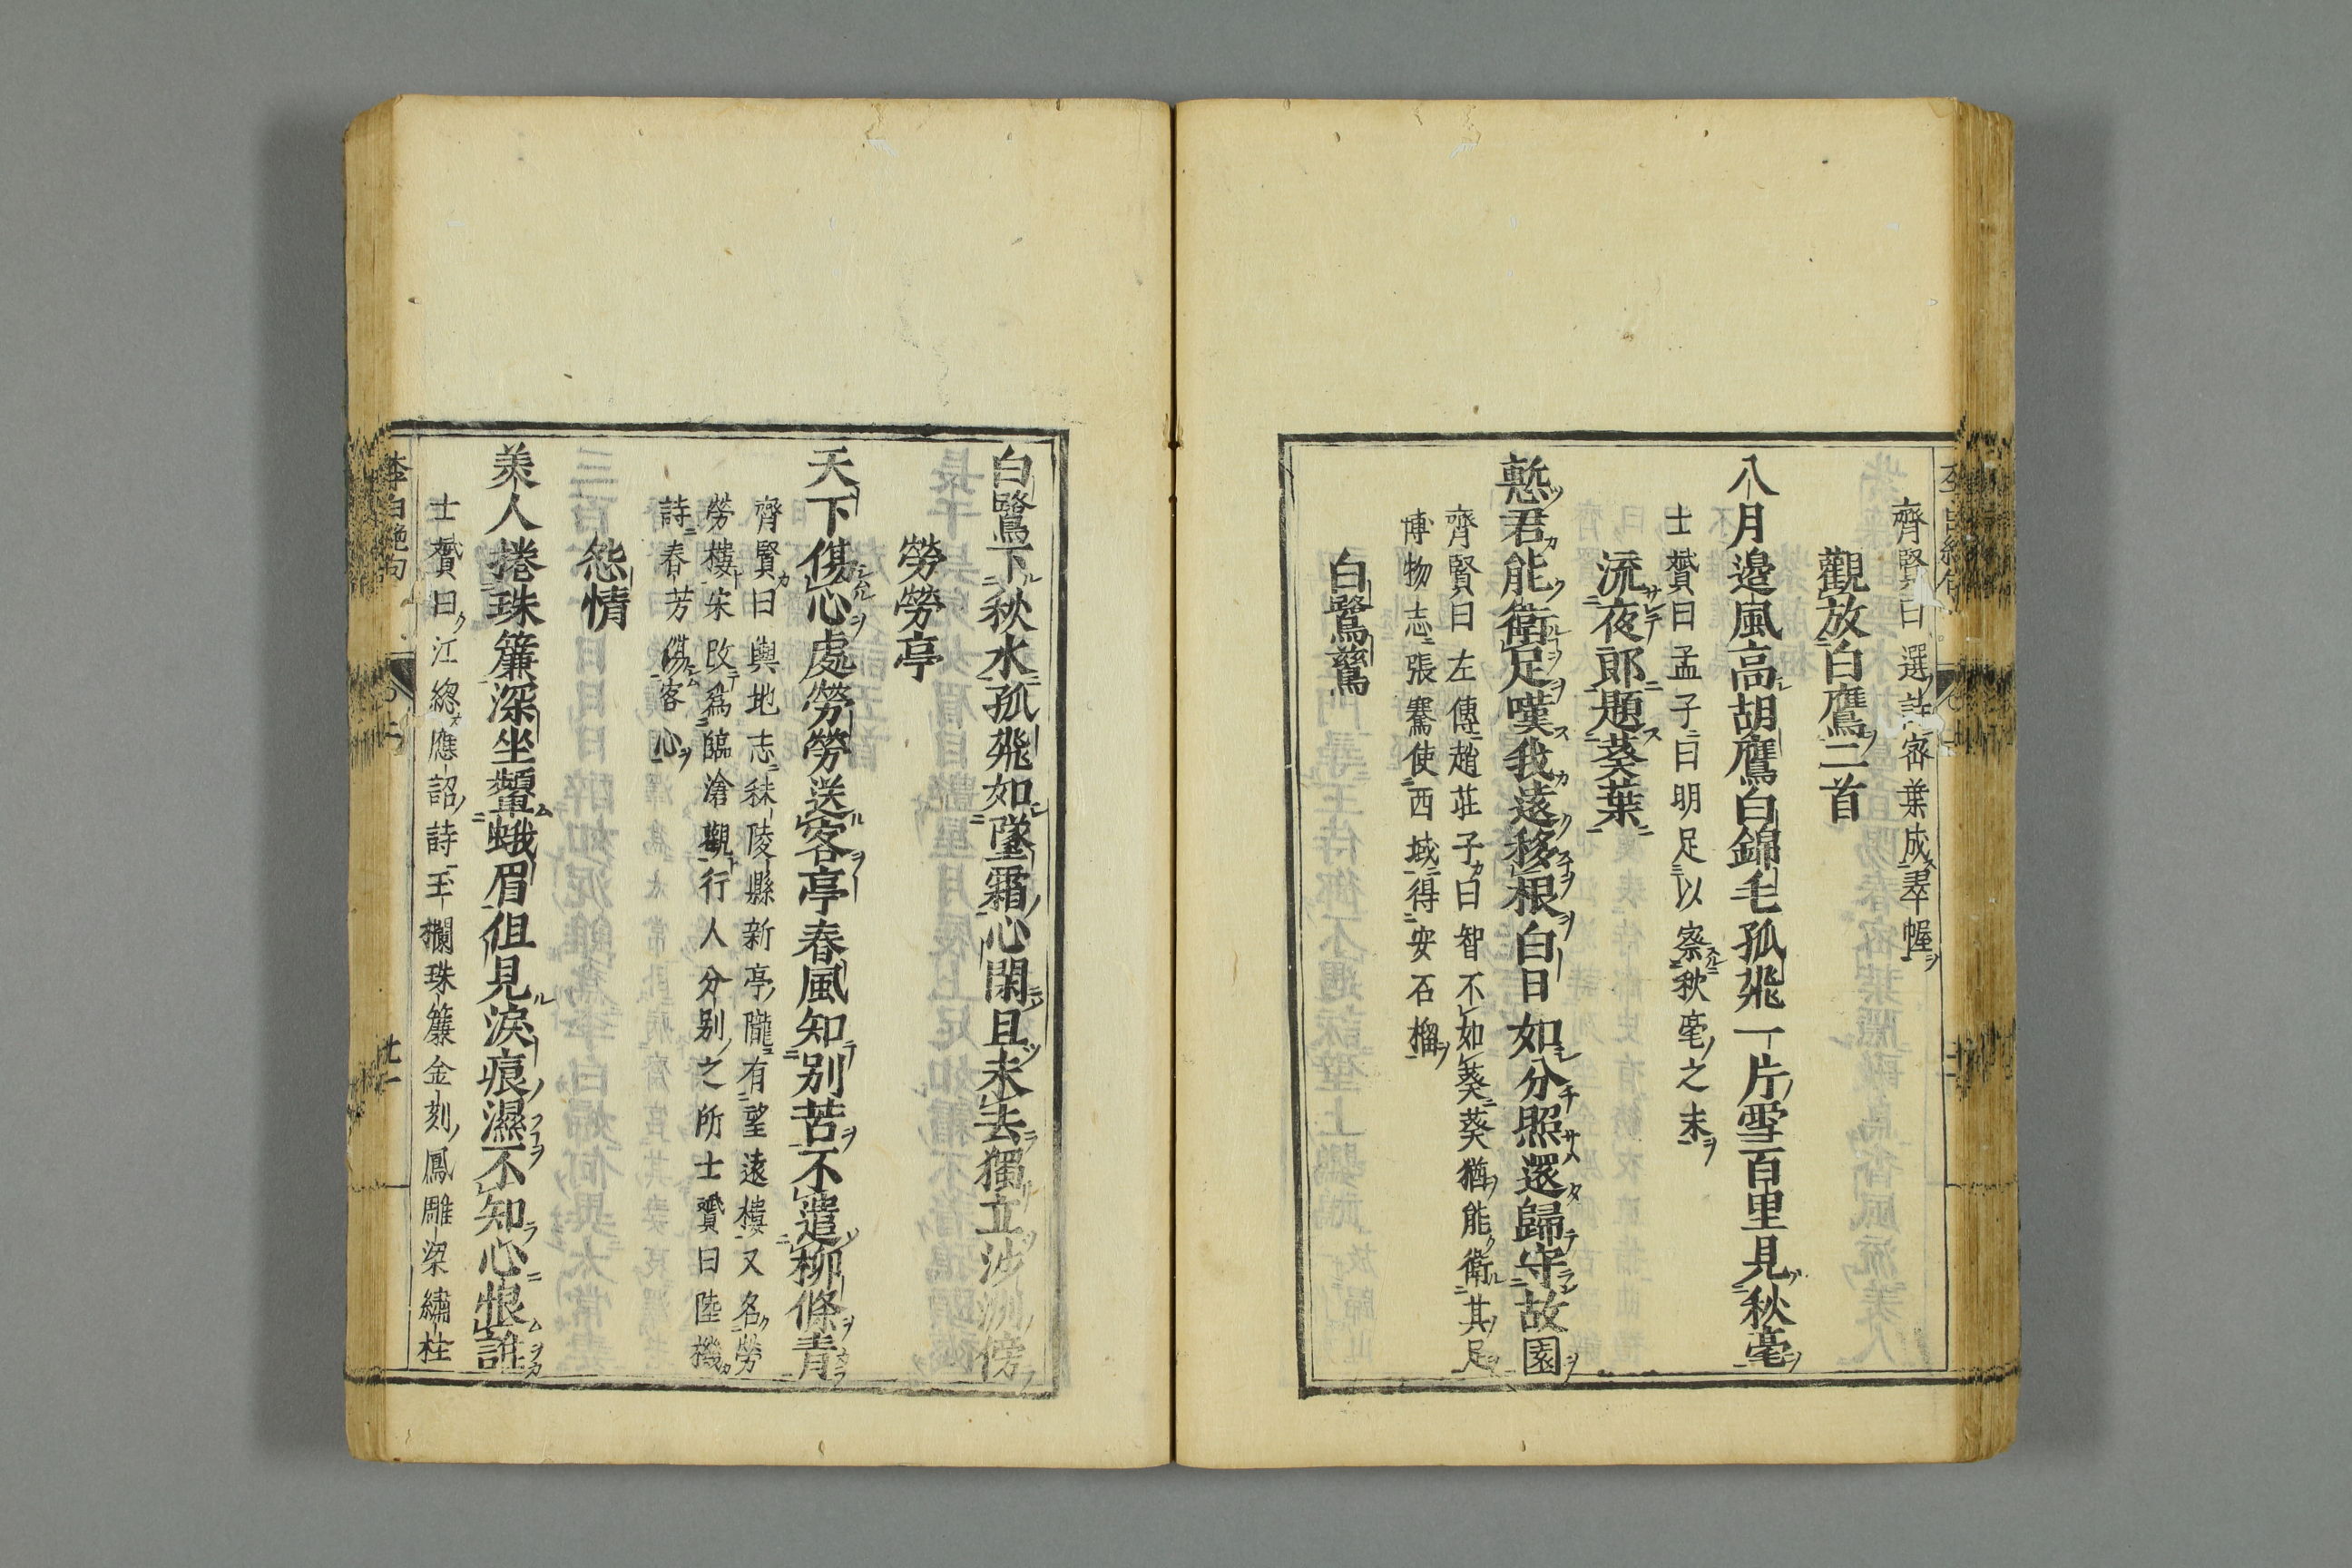 齊賢曰選詩密葉成翠幄
觀放白鷹二首
八月邉風高胡鷹白錦毛孤飛一片雪百里見秋毫
士贇曰孟子曰明足以察秋毫之末
流夜郎題葵葉
慙君能衛足嘆我遠移根白日如分照還歸守故園
齊賢曰左傳趙莊子曰智不如葵葵猶能衛其足
博物志張騫使西域得安石榴
白鷺鷥
白鷺下秋水孤飛如墜霜心閑且未去獨立沙洲傍
勞勞亭
天下傷心處勞勞送客亭春風知别苦不遣柳條青
齊賢曰輿地志秣陵縣新亭隴有望遠樓又名勞
勞樓宋改爲臨滄觀行人分别之所士贇曰陸機
詩春芳傷客心
怨情
美人捲珠簾深坐顰蛾眉但見淚痕濕不知心恨誰
士贇曰江緫應詔詩玉欄珠簾金刻鳳雕梁繡柱
李白絶句
廿一